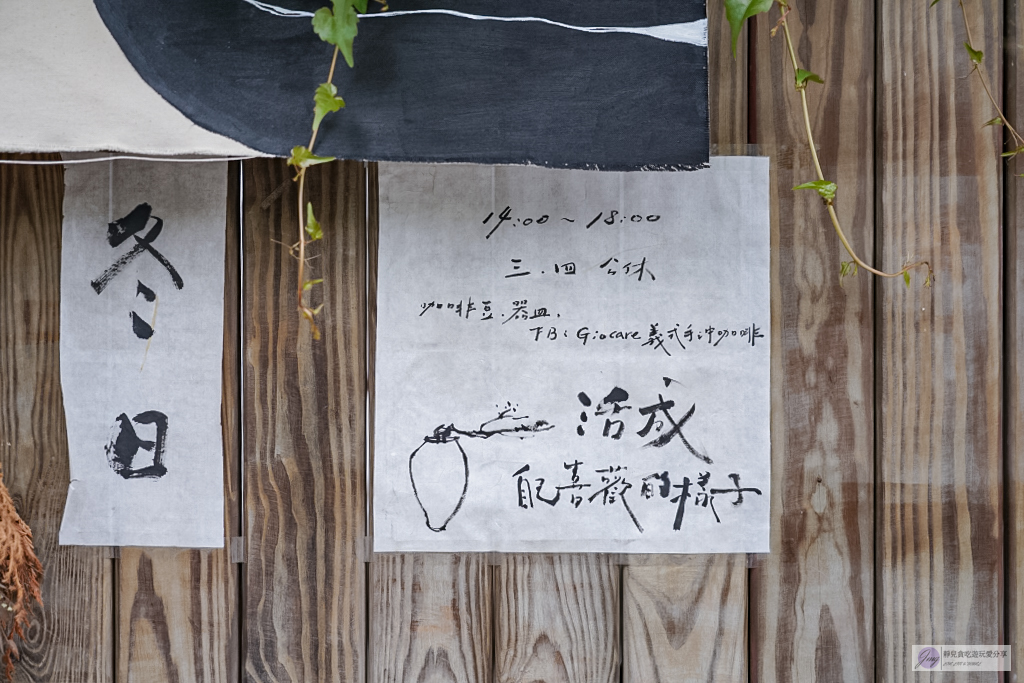 冬日
14:00~18:00
三.四 公休
咖啡豆.器皿.
FB: Giocare義式手沖咖啡
活成
自己喜歡的樣子
靜兒貪吃遊玩愛分享